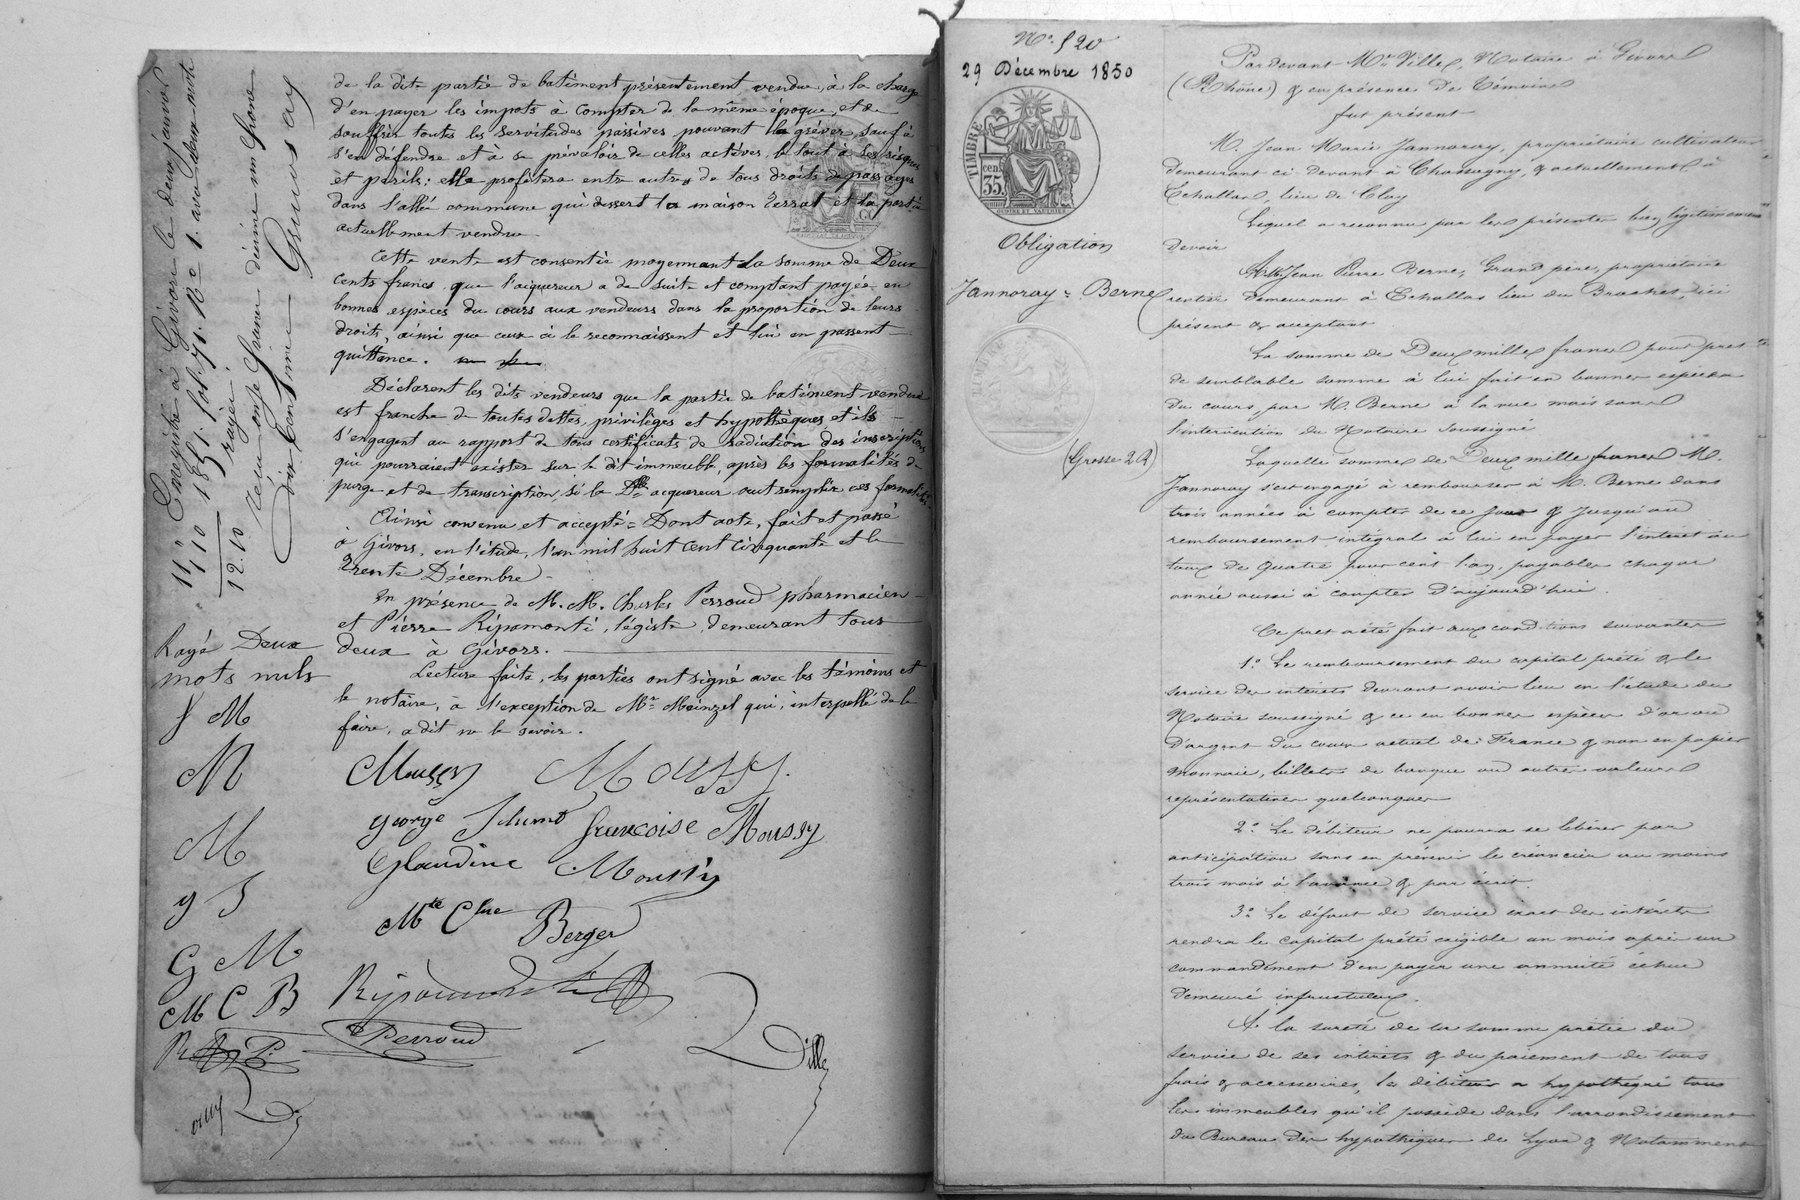 de la dite partie de batiment présentement vendue, à la charge
d'en payer les impots à compter de la même époque, et de
souffrir toutes les servitudes passives pouvant la gréver, sauf à
s'en défendre et à se prévaloir de celles actives, le tout à ses risques
et périls; elle profitera entre autres de tous droits de passages
dans l'allée commune qui dessert la maison Terrat et la partie
actuellement vendue
Cette vente est consentie moyennant la somme de Deux
cents francs que l'acquereur a de suite et comptant payée en
bonnes espèces du cours aux vendeurs dans la proportion de leurs
droits, ainsi que ceux ci le reconnaissent et lui en passent
quittance.
Déclarent les dits vendeurs que la partie de batiment vendue
est franche de toutes dettes, privilèges et hypothèques, et ils
s'engagent au rapport de tous certificats de radiation des inscriptions
qui pourraient exister sur le dit immeuble, après les formalités de
purge et de transcription, si la Dlle acquereur veut remplir ces formalités.
Ainsi convenu et accepté = Dont acte, fait et passé
à Givors, en l'étude, l'an mil huit cent cinquante et le
Trente Décembre -
En présence de M. M. Charles Perroud pharmacien
et Pierre Ripamonti, légiste, demeurant tous
deux à Givors.
Lecture faite, les parties ont signé avec les témoins et
le notaire, à l'exception de Mr Meinzel qui, interpellé de le
faire, a dit ne le savoir.
Moussy Moussy.
george Schmid francoise Moussy
Glaudine Moussy
Mte Clne Berger
Ripamonti
Perroud
Ville
11"
1 10
12.10
Enregistré à Givors le deux janvier
1851. fol. 71. Ro c. 1. avec deux mots
rayés
reçu onze francs décime un franc
dix centimes
Rayé Deux
mots nuls
f M
M
M
g S
G M
M C B
R P.
No 520
29 Décembre 1850
TIMBRE
35 cen.
Obligation
Jannoray = Berne
(Grosse 2 R)
Pardevant Me Ville, Notaire à Givors
(Rhône) & en présence de Témoins
fut présent
M. Jean Marie Jannoray, propriétaire cultivateur
demeurant ci devant à Chassagny, & actuellement à
Echallas, lieu de Clay
Lequel a reconnu par les présentes bien légitimement
devoir
A M. Jean Pierre Berne, Grand père, propriétaire
rentier demeurant à Echallas lieu du Brachet, ici
présent & acceptant
La somme de Deux mille francs pour prêt
de semblable somme à lui fait en bonnes espèces
du cours, par M. Berne à la vue mais sans
l'intervention du Notaire soussigné
Laquelle somme de Deux mille francs M.
Jannoray s'est engagé à rembourser à M. Berne dans
trois années à compter de ce jour & jusqu'au
remboursement intégral à lui en payer l'intérêt au
taux de quatre pour cent l'an, payable chaque
année aussi à compter d'aujourd'hui.
Ce prêt a été fait aux conditions suivantes
1o Le remboursement du capital prêté & le
service des intérets devront avoir lieu en l'étude du
Notaire soussigné & ce en bonnes espèces d'or ou
d'argent du cours actuel de France & non en papier
monnaie, billets de banque ou autres valeurs
représentatives quelconques
2o Le débiteur ne pourra se libérer par
anticipation sans en prévenir le créancier au moins
trois mois à l'avance & par écrit.
3o Le défaut de service exact des intérêts
rendra le capital prêté exigible un mois après un
commandement d'en payer une annuité échue
demeuré infructueux.
A la sureté de la somme prêtée du
service de ses intérêts & du paiement de tous
frais & accessoires, le débiteur a hypothéqué tous
les immeubles qu'il possède dans l'arrondissement
du Bureau des hypothèques de Lyon & Notamment